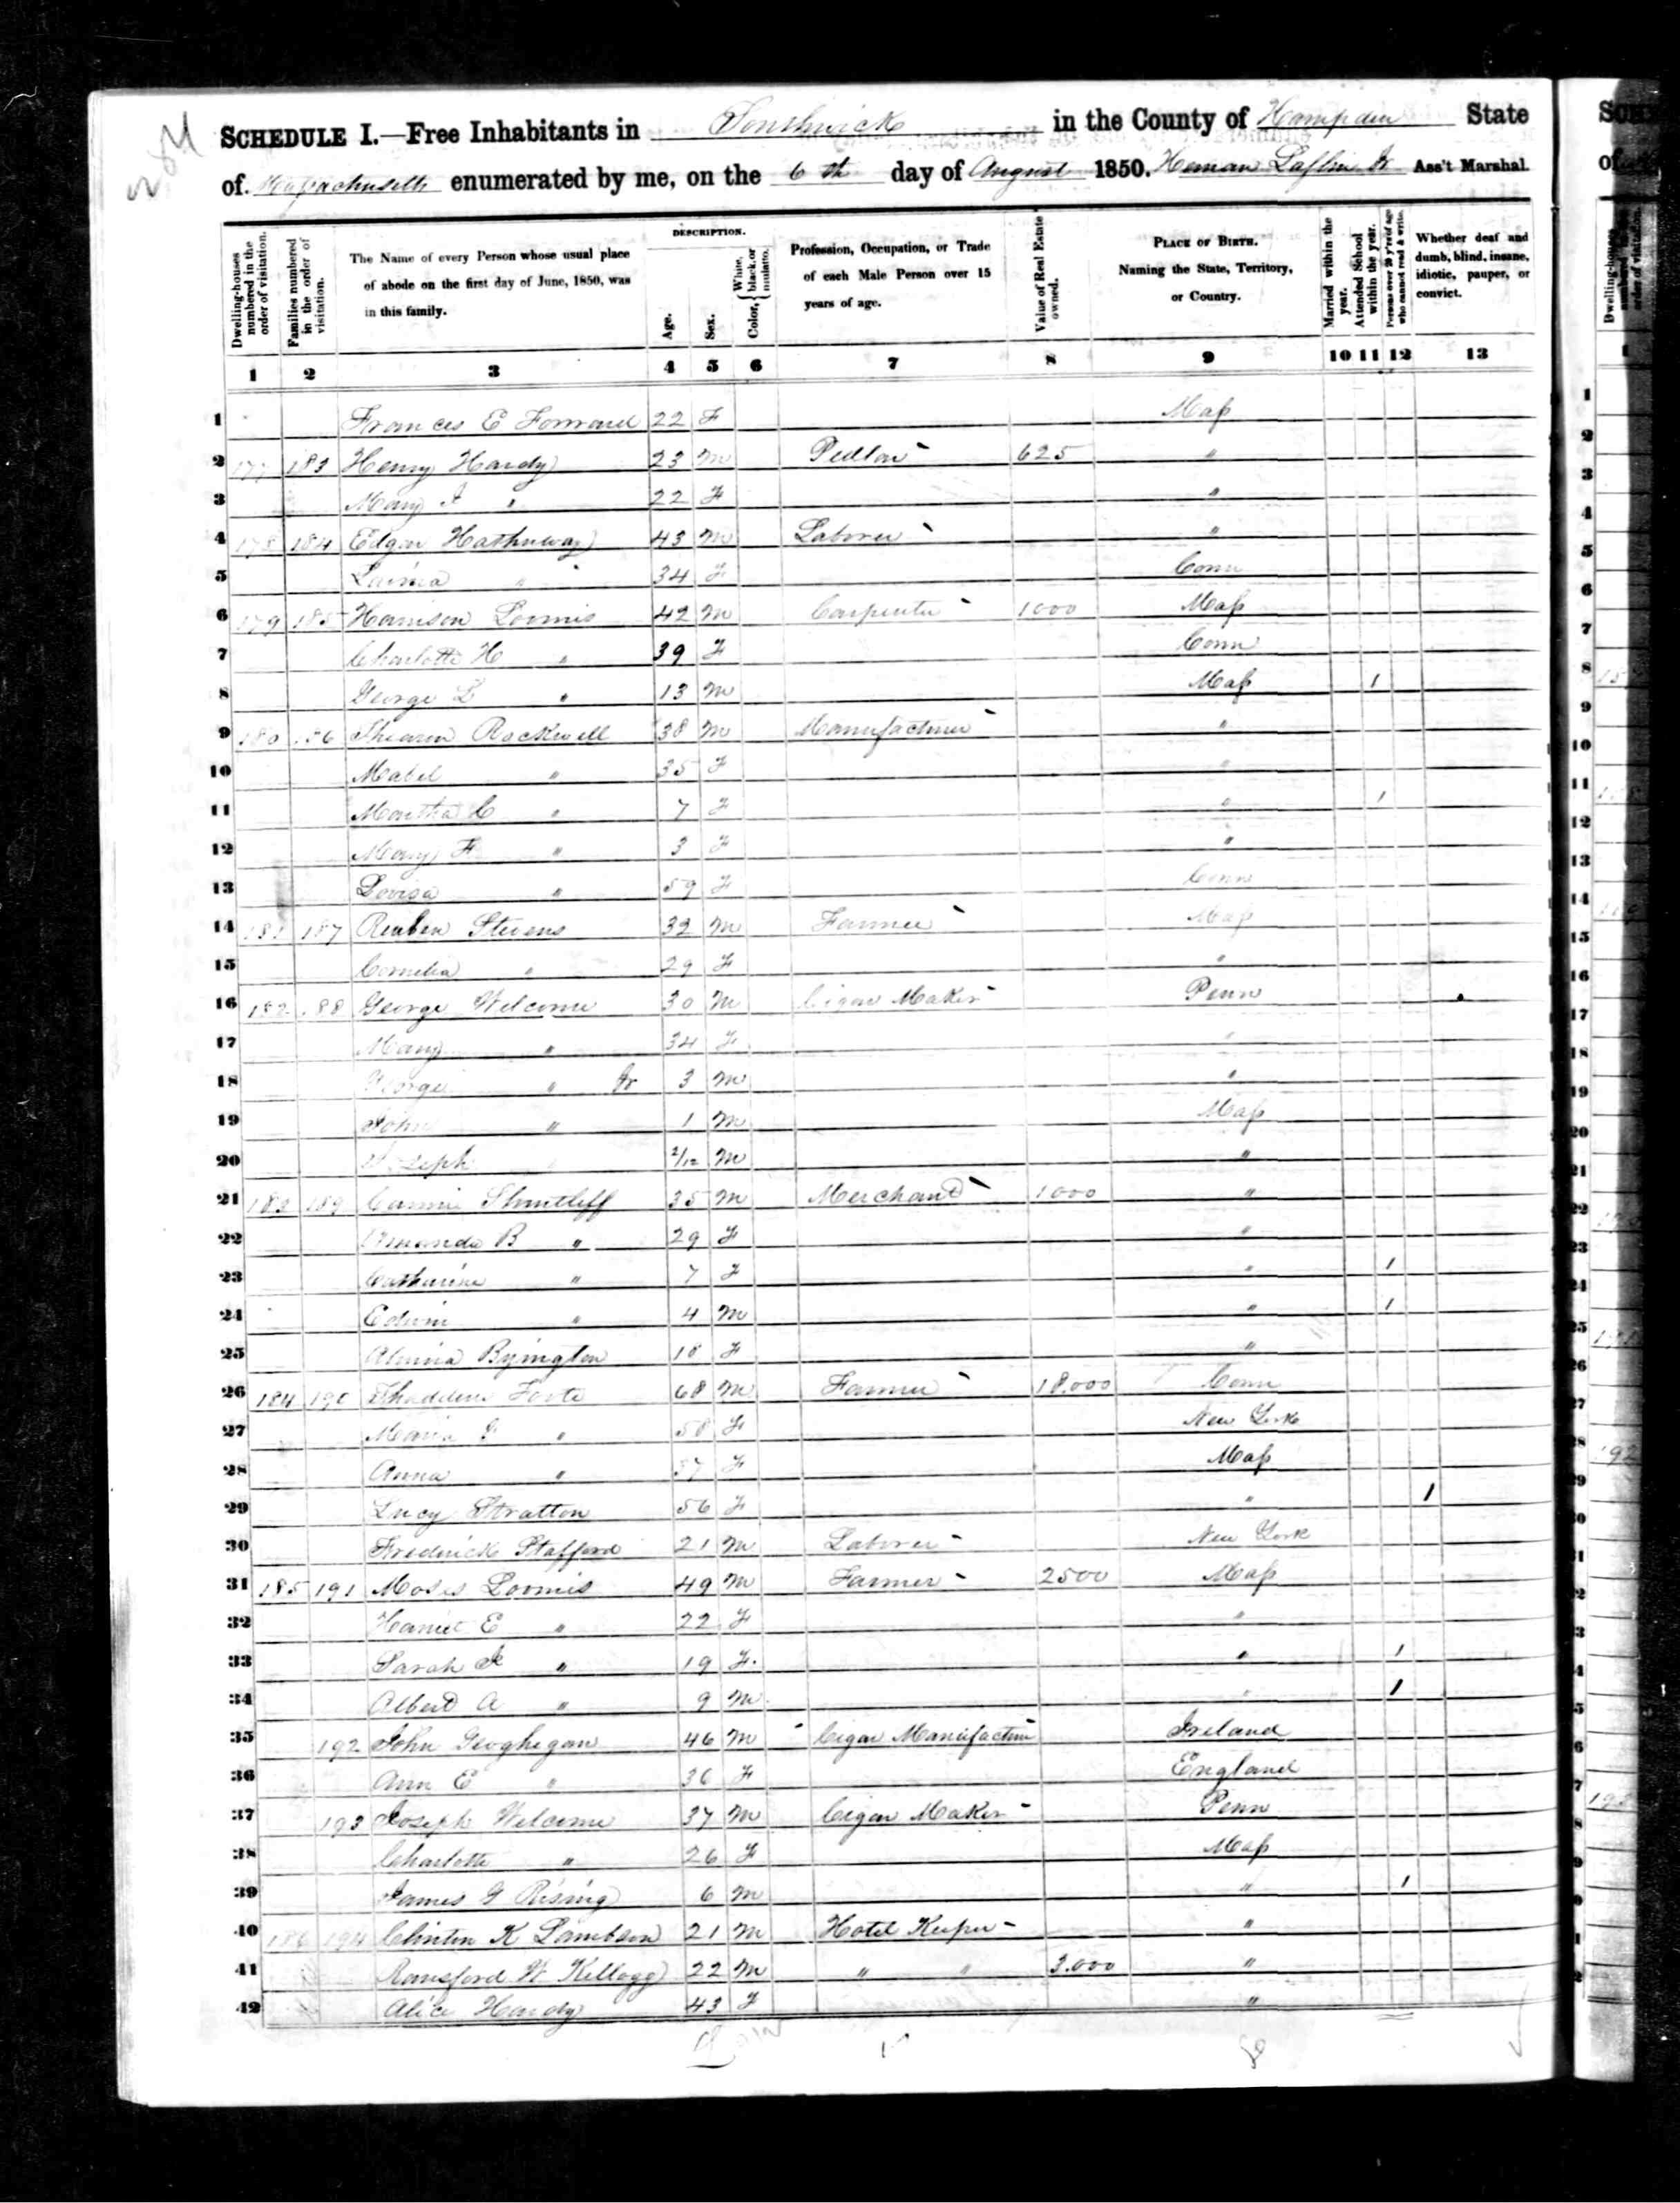 284
SCHEDULE I.—Free Inhabitants in Southwick in the County of Hampden State
of Massachusetts enumerated by me, on the 6th day of August 1850. Heman Laflin Jr Ass't Marshal.
Dwelling-houses numbered in the order of visitation.
Families numbered in the order of visitation.
The Name of every Person whose usual place of abode on the first day of June, 1850, was in this family.
DESCRIPTION.
Age.
Sex.
Color, { White, black, or mulatto.
Profession, Occupation, or Trade of each Male Person over 15 years of age.
Value of Real Estate owned.
PLACE OF BIRTH. Naming the State, Territory, or Country.
Married within the year.
Attended School within the year.
Persons over 20 y'rs of age who cannot read & write.
Whether deaf and dumb, blind, insane, idiotic, pauper, or convict.
1 2 3 4 5 6 7 8 9 10 11 12 13
1 Frances E Forward 22 F Mass
2 177 183 Henry Hardy 23 M Pedlar 625 "
3 Mary " 22 F "
4 178 184 Edgar Hathaway 43 M Laborer "
5 " 34 F Conn
6 179 185 Harrison Loomis 42 M Carpenter 1000 Mass
7 Charlotte H " 39 F Conn
8 George L " 13 M Mass 1
9 180 186 Rockwell 38 M Manufacturer "
10 Mabel " 35 F "
11 Martha C " 7 F " 1
12 Mary F " 3 F "
13 Lovisa " 59 F Conn
14 181 187 Reuben Stevens 32 M Farmer Mass
15 Cornelia " 29 F "
16 182 188 George Welcome 30 M Cigar Maker Penn
17 Mary " 34 F "
18 George " Jr 3 M "
19 John " 1 M Mass
20 Joseph 2/12 M "
21 183 189 Shurtliff 35 M Merchant 1000 "
22 Amanda B " 29 F "
23 Catharine " 7 F " 1
24 Edwin " 4 M " 1
25 Almira Byington 18 F "
26 184 190 Thaddeus Foote 68 M Farmer 18.000 Conn
27 Maria " 58 F New York
28 Anna " 57 F Mass
29 Lucy Stratton 56 F " 1
30 Frederick Stafford 21 M Laborer New York
31 185 191 Moses Loomis 49 M Farmer 2500 Mass
32 Harriet E " 22 F "
33 Sarah " 19 F. " 1
34 Albert A " 9 M " 1
35 192 John Geoghegan 46 M Cigar Manufactur Ireland
36 Ann E " 36 F England
37 193 Joseph Welcome 37 M Cigar Maker Penn
38 Charlotte " 26 F Mass
39 James G Rising 6 M " 1
40 186 194 Clinton K Lambson 21 M Hotel Keeper "
41 Ransford W Kellogg 22 M " " 3.000 "
42 Alice Hardy 43 F "